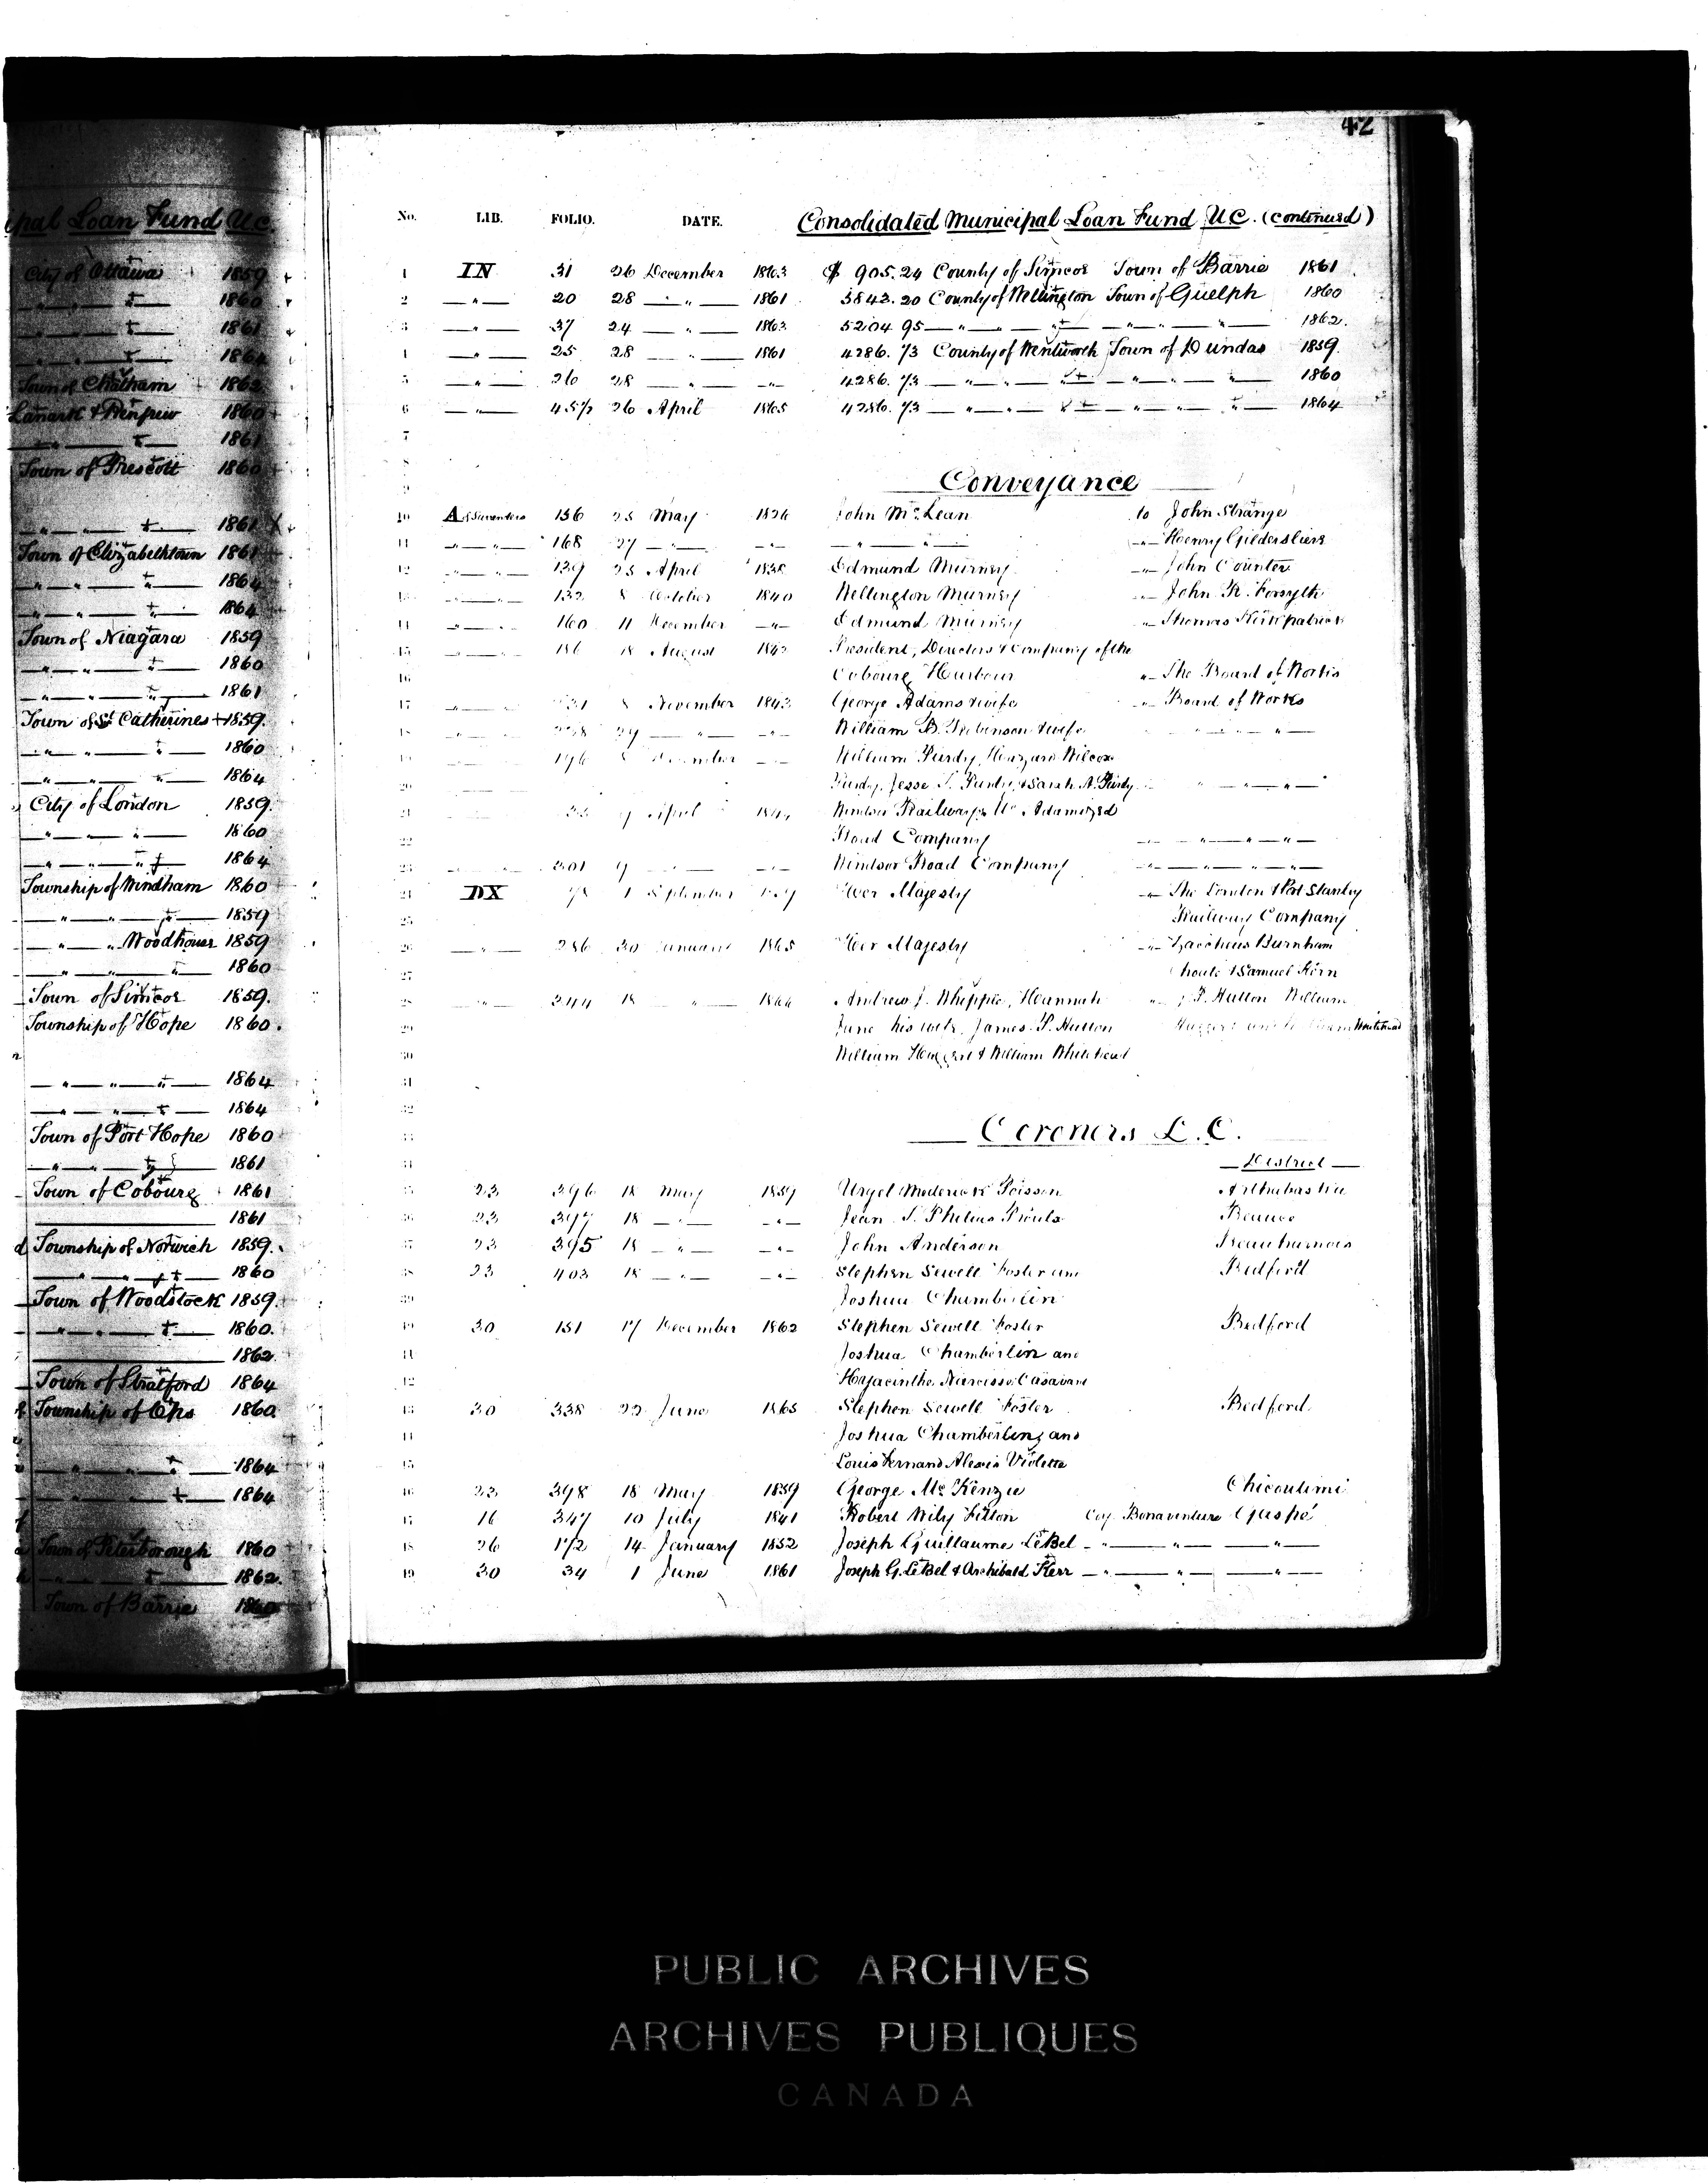 ipal Loan Fund U.C.
City of Ottawa 1859
" " 1860
" " 1861
" " 1864
Town of Chatham 1862
Lanark & Renfrew 1860
" 1861
Town of Prescott 1860
" " 1861
Town of Elizabethtown 1861
" " " 1864
" " " 1864
Town of Niagara 1859
" " " 1860
" " " 1861
Town of St Catherines 1859.
" " " 1860
" " " 1864
City of London 1859.
" " " 1860
" " " 1864
Township of Windham 1860
" " " 1859
" " Woodhouse 1859
" " " 1860
Town of Simcoe 1859.
Township of Hope 1860.
" " " 1864
" " " 1864
Town of Port Hope 1860
" " 1861
Town of Cobourg 1861
1861
Township of Norwich 1859.
" " " 1860
Town of Woodstock 1859.
" " " 1860.
1862.
Town of Stratford 1864
Township of Ops 1860
" " " 1864
" " " 1864
Town of Peterborough 1860
" " 1862.
Town of Barrie 1860
42
No. LIB. FOLIO. DATE. Consolidated Municipal Loan Fund U.C. (continued)
1 IN 31 26 December 1863 $ 905.24 County of Simcoe Town of Barrie 1861
2 " 20 28 " 1861 3843.20 County of Wellington Town of Guelph 1860
3 " 37 24 " 1863 5204 95 " " " " " " 1862.
4 " 25 28 " 1861 4286.73 County of Wentworth Town of Dundas 1859.
5 " 26 28 " " 4286.73 " " " " " " 1860
6 " 45½ 26 April 1865 4286.73 " " " " " " 1864
7
8
9 Conveyance
10 A Surrenders 156 25 May 1826 John McLean to John Strange
11 " " 168 27 " " " " " " Henry Gildersliere
12 " " 139 25 April 1838 Edmund Murney " John Counter
13 " 132 8 October 1840 Wellington Murney " John R. Forsyth
14 " 160 11 December " Edmund Murney " Thomas Kirkpatrick
15 " 186 18 August 1842 President, Directors & Company of the
16 Cobourg Harbour " The Board of Works
17 " 8 November 1843 George Adams & wife " Board of Works
18 29 " " William B. Robinson & wife " " "
19 196 December " William Purdy, Hazzard Wilcox
20 Purdy, Jesse T. Purdy, & Sarah A. Purdy " " " "
21 9 April Windsor Railway & McAdamized
22 Road Company " " " "
23 301 9 " " Windsor Road Company " " " "
24 DX 78 1 September Her Majesty " The London & Port Stanley
25 Railway Company
26 " 286 30 January 1865 Her Majesty " Zaccheus Burnham
27 Choate & Samuel Kern
28 " 244 18 " 1866 Andrew J. Whipple, Hannah " J. P. Hutton William
29 Jane his wife, James P. Hutton Haggert and William Whitehead
30 William Haggert & William Whitehead
31
32
33 Coroners L.C.
34 District
35 23 396 18 May 1859 Urgel Moderick Poisson Arthabaska
36 23 397 18 " " Jean T. Philias Proulx Beauce
37 23 395 18 " " John Anderson Beauharnois
38 23 403 18 " " Stephen Sewell Foster and Bedford
39 Joshua Chamberlin
40 30 151 17 December 1862 Stephen Sewell Foster Bedford
41 Joshua Chamberlin and
42 Hyacinthe Narcisse Casavant
43 30 338 22 June 1865 Stephen Sewell Foster Bedford
44 Joshua Chamberlin, and
45 Louis Fernand Alexis Violette
46 23 398 18 May 1859 George McKenzie Chicoutimi
47 16 347 10 July 1841 Robert Wily Fitton Coy. Bonaventure Gaspé
48 26 172 14 January 1852 Joseph Guillaume LeBel " " "
49 30 34 1 June 1861 Joseph G. LeBel & Archibald Kerr " " "
PUBLIC ARCHIVES
ARCHIVES PUBLIQUES
CANADA